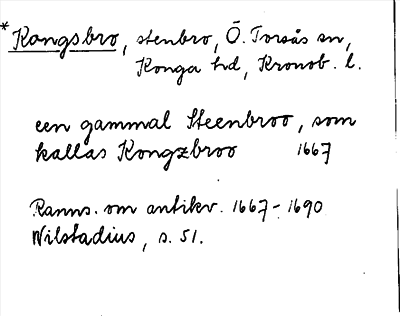 *Kongsbro, stenbro, Ö. Torsås sn,
Konga hd, Kronob. l.
een gammal Steenbroo, som
kallas Kongzbroo 1667
Ranns. om antikv. 1667-1690
Wilstadius, s. 51.